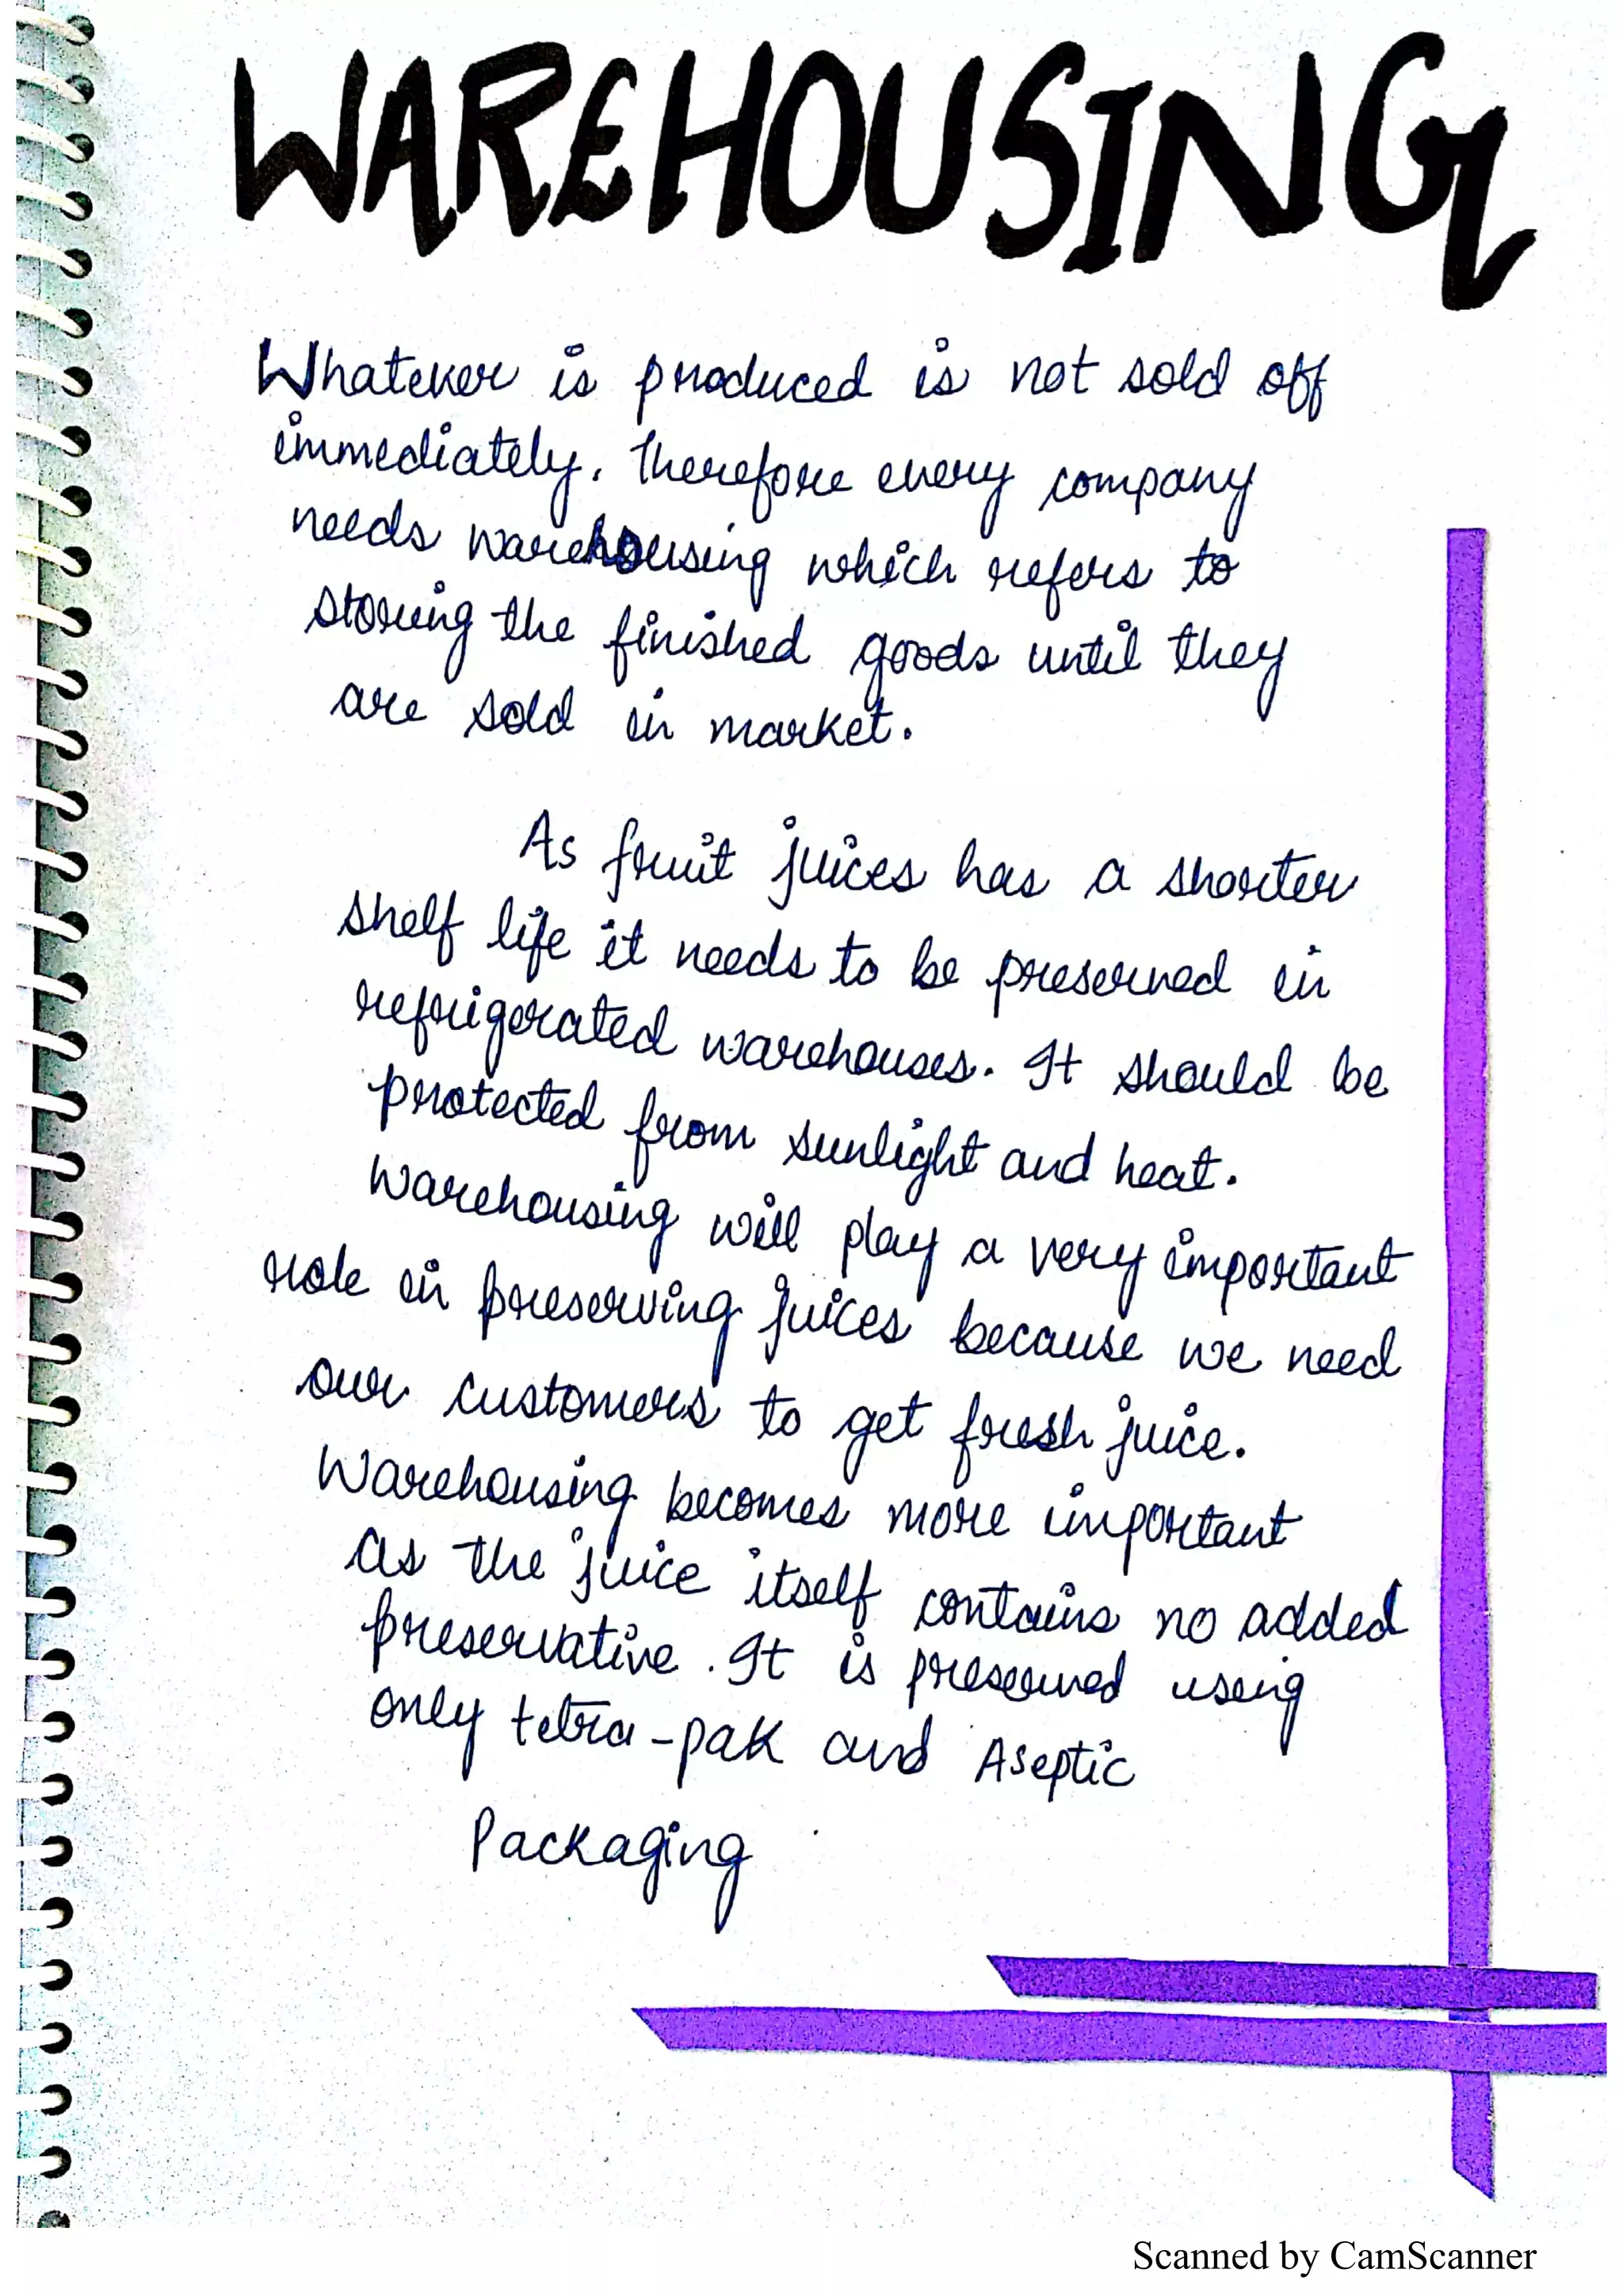 WAREHOUSING
Whatever is produced is not sold off
immediately. Therefore every company
needs warehousing which refers to
storing the finished goods until they
are sold in market.
As fruit juices has a shorter
shelf life it needs to be preserved in
refrigerated warehouses. It should be
protected from sunlight and heat.
Warehousing will play a very important
role in preserving juices because we need
our customers to get fresh juice.
Warehousing becomes more important
as the juice itself contains no added
preservative. It is preserved using
only tetra-pak and Aseptic
Packaging
Scanned by CamScanner